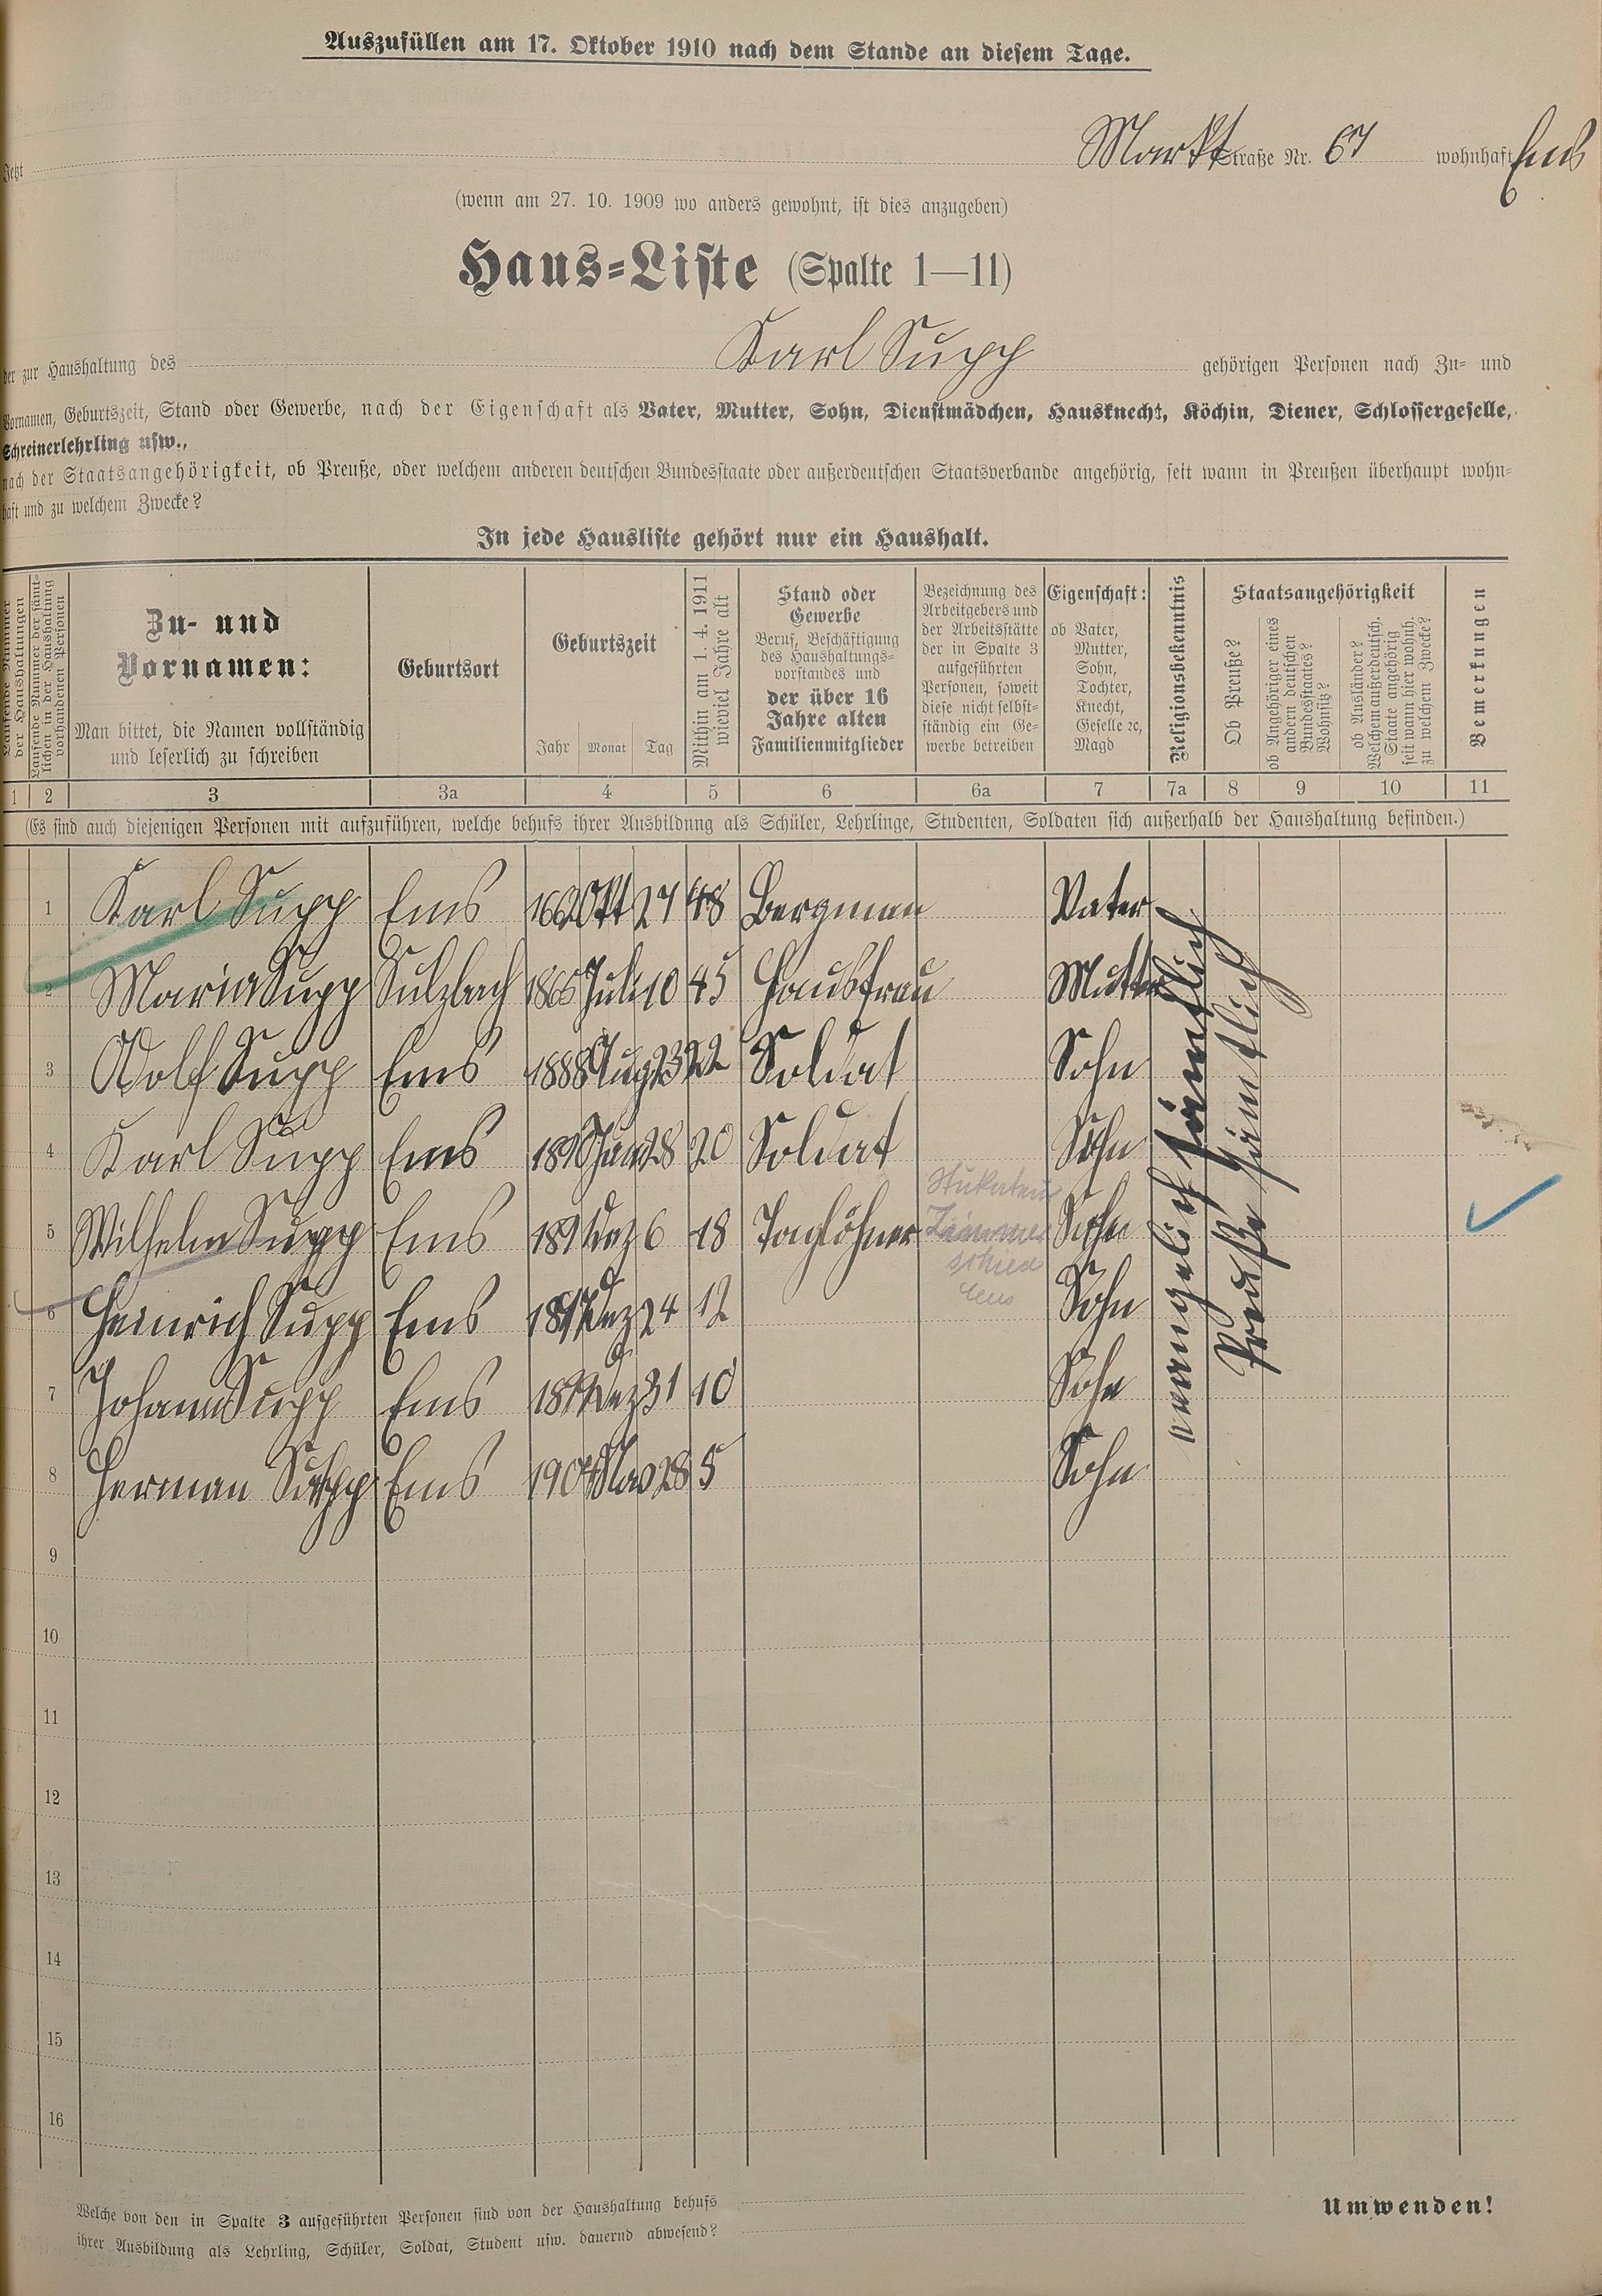 Auszufüllen am 17. Oktober 1910 nach dem Stande an diesem Tage.
Jetzt Markt straße Nr. 67 wohnhaft Ems
(wenn am 27. 10. 1909 wo anders gewohnt, ist dies anzugeben)
Haus-Liste (Spalte 1—11)
der zur Haushaltung des Karl Supp gehörigen Personen nach Zu- und
Vornamen, Geburtszeit, Stand oder Gewerbe, nach der Eigenschaft als Vater, Mutter, Sohn, Dienstmädchen, Hausknecht, Köchin, Diener, Schlossergeselle,
Schreinerlehrling usw.,
nach der Staatsangehörigkeit, ob Preuße, oder welchem anderen deutschen Bundesstaate oder außerdeutschen Staatsverbande angehörig, seit wann in Preußen überhaupt wohn-
haft und zu welchem Zwecke?
In jede Hausliste gehört nur ein Haushalt.
Laufende Nummer
der Haushaltungen
Laufende Nummer der sämt-
lichen in der Haushaltung
vorhandenen Personen
Zu- und
Vornamen:
Man bittet, die Namen vollständig
und leserlich zu schreiben
Geburtsort
Geburtszeit
Jahr Monat Tag
Mithin am 1. 4. 1911
wieviel Jahre alt
Stand oder
Gewerbe
Beruf, Beschäftigung
des Haushaltungs-
vorstandes und
der über 16
Jahre alten
Familienmitglieder
Bezeichnung des
Arbeitgebers und
der Arbeitsstätte
der in Spalte 3
aufgeführten
Personen, soweit
diese nicht selbst-
ständig ein Ge-
werbe betreiben
Eigenschaft:
ob Vater,
Mutter,
Sohn,
Tochter,
Knecht,
Geselle ꝛc,
Magd
Religionsbekenntnis
Staatsangehörigkeit
Ob Preuße?
ob Angehöriger eines
andern deutschen
Bundesstaates?
Wohnsitz?
ob Ausländer?
Welchem außerdeutsch.
Staate angehörig
seit wann hier wohnh.
zu welchem Zwecke?
Bemerkungen
1 2 3 3a 4 5 6 6a 7 7a 8 9 10 11
(Es sind auch diejenigen Personen mit aufzuführen, welche behufs ihrer Ausbildung als Schüler, Lehrlinge, Studenten, Soldaten sich außerhalb der Haushaltung befinden.)
1 Karl Supp Ems 1862 Okt 27 48 Bergman Vater
2 Maria Supp Sulzbach 1865 Juli 10 45 Hausfrau Mutter
3 Adolf Supp Ems 1888 Aug 23 22 Soldat Sohn
4 Karl Supp Ems 1890 Jun 28 20 Soldat Sohn
5 Wilhelm Supp Ems Dez 6 18 Taglöhner Stukateur Sohn
6 Heinrich Supp Ems Dez 24 12 Sohn
7 Johann Supp Ems Dez 31 10 Sohn
8 Herman Supp Ems Nov 28 5 Sohn
evangelisch sämtlich
Preuße sämtlich
9
10
11
12
13
14
15
16
Welche von den in Spalte 3 aufgeführten Personen sind von der Haushaltung behufs
ihrer Ausbildung als Lehrling, Schüler, Soldat, Student usw. dauernd abwesend?
Umwenden!